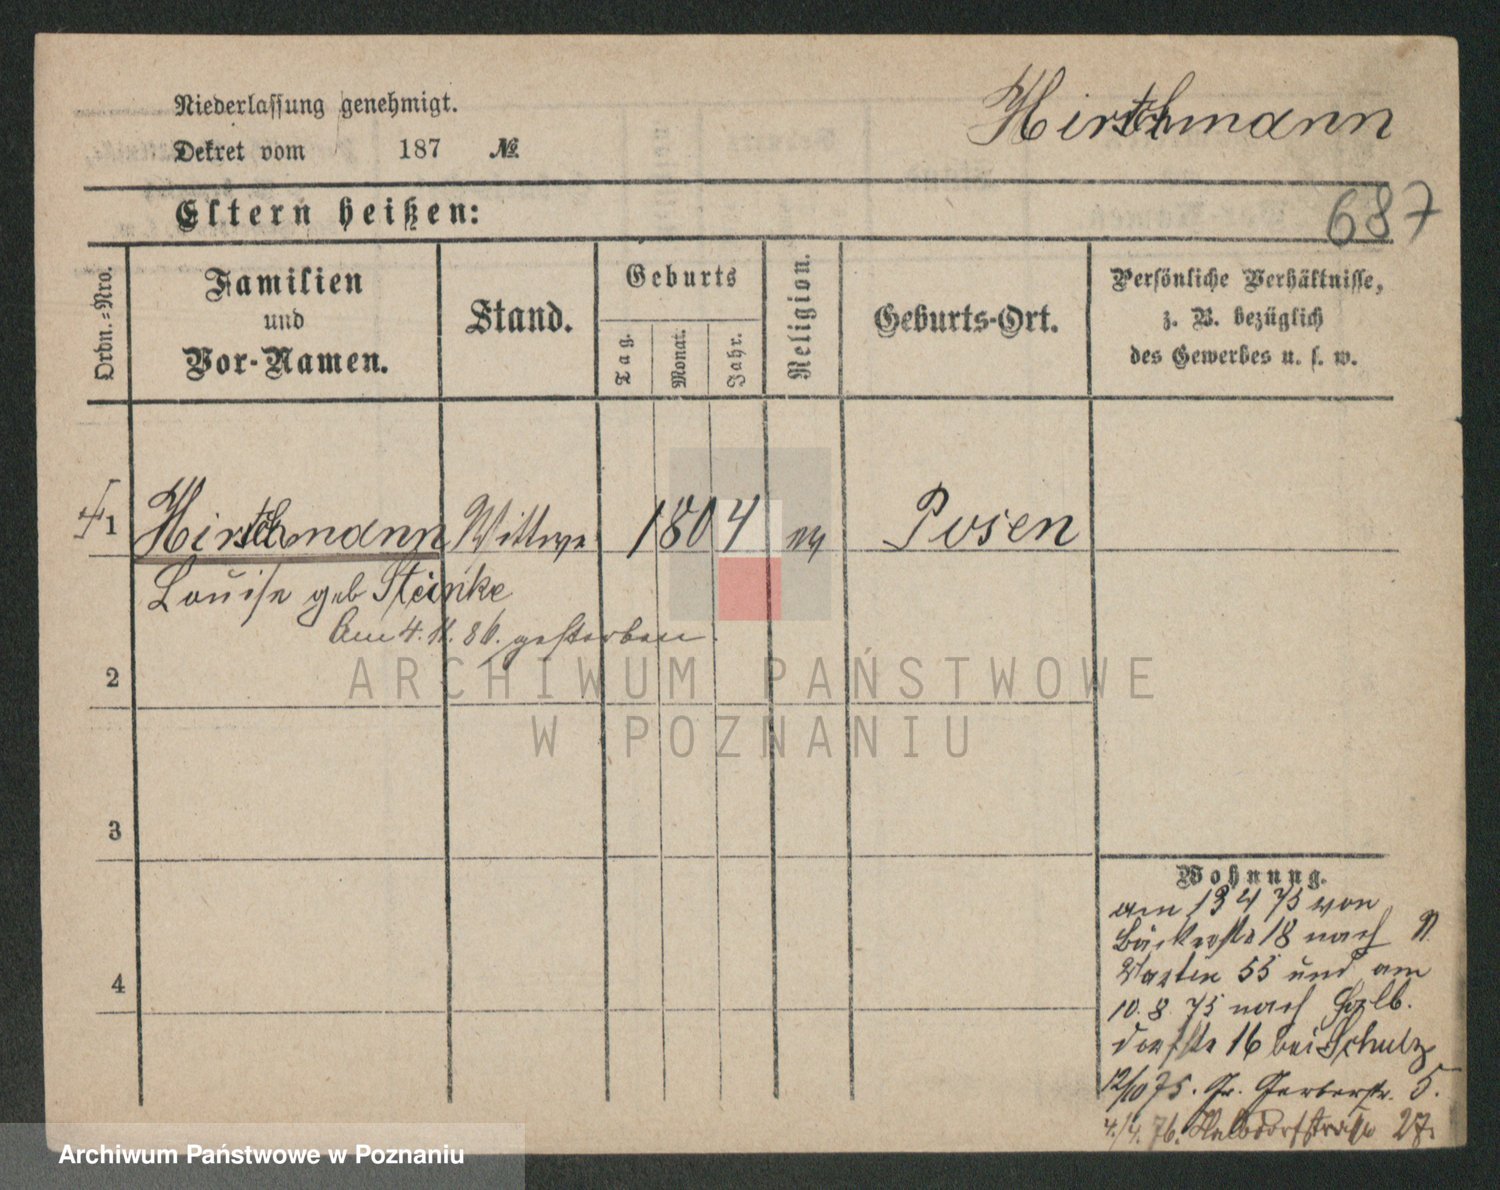 Niederlassung genehmigt.
Dekret vom 187 №
Hirschmann
687
Eltern heißen:
Ordn.-Nro.
Familien und Vor-Namen.
Stand.
Geburts
Tag.
Monat.
Jahr.
Religion.
Geburts-Ort.
Persönliche Verhältnisse,
z. B. bezüglich
des Gewerbes u. s. w.
1 Hirschmann Wittwe 1804 Posen
Louise geb Steinke
Am 4. 11. 86. gestorben.
2
3
4
Wohnung.
am 13 4 75 von
Bäckerstr 18 nach
55 und am
10. 8 75 nach Halb
dorfstr 16 bei Schulz
12/10 75. Gr. Gerberstr. 5.
4./4. 76. Halbdorfstraße 27.
ARCHIWUM PAŃSTWOWE
W POZNANIU
Archiwum Państwowe w Poznaniu